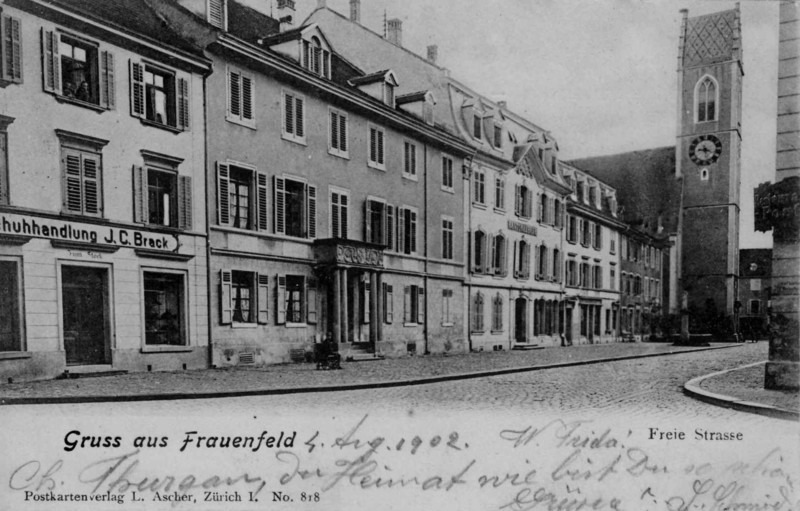 chuhhandlung J. C. Brack
Gruss aus Frauenfeld 4. Aug. 1902. W. Frida! Freie Strasse
Ch. Thurgau, der Heimat wie bist Du so schön
Postkartenverlag L. Ascher, Zürich I. No. 818